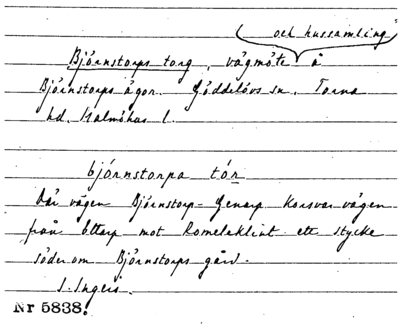 (och hussamling)
Björnstorps torg, vägmöte å
Björnstorps ägor. Gödelövs sn. Torna
hd. Malmöhus l.
björnstorpa tór
Där vägen Björnstorp-Genarp korsar vägen
från Ettarp mot Romeleklint ett stycke
söder om Björnstorps gård.
S. Ingers.
Nr 5838.